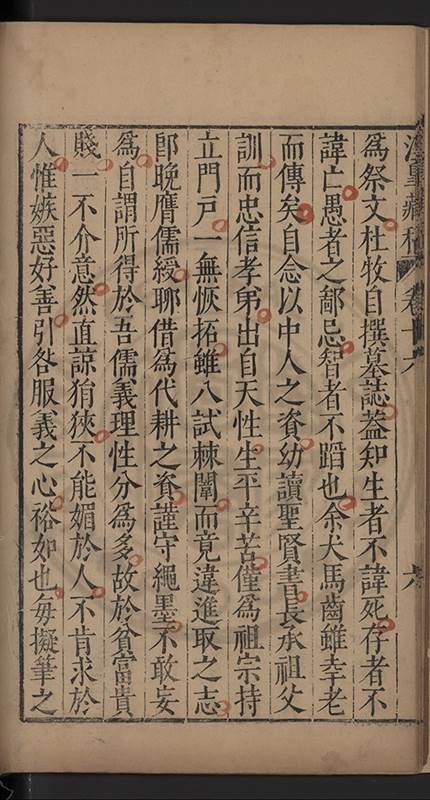 藏稿 卷十六 六
為祭文杜牧自撰墓誌蓋知生者不諱死存者不
諱亡愚者之鄙忌智者不蹈也余犬馬齒雖幸老
而傳矣自念以中人之資幼讀聖賢書長承祖父
訓而忠信孝弟出自天性生平辛苦僅為祖宗持
立門戶一無恢拓雖八試棘闈而竟違進取之志
即晚膺儒綬聊借為代耕之資謹守繩墨不敢妄
為自謂所得於吾儒義理性分為多故於貧富貴
賤一不介意然直諒狷狹不能媚於人不肯求於
人惟嫉惡好善引咎服義之心裕如也每擬筆之